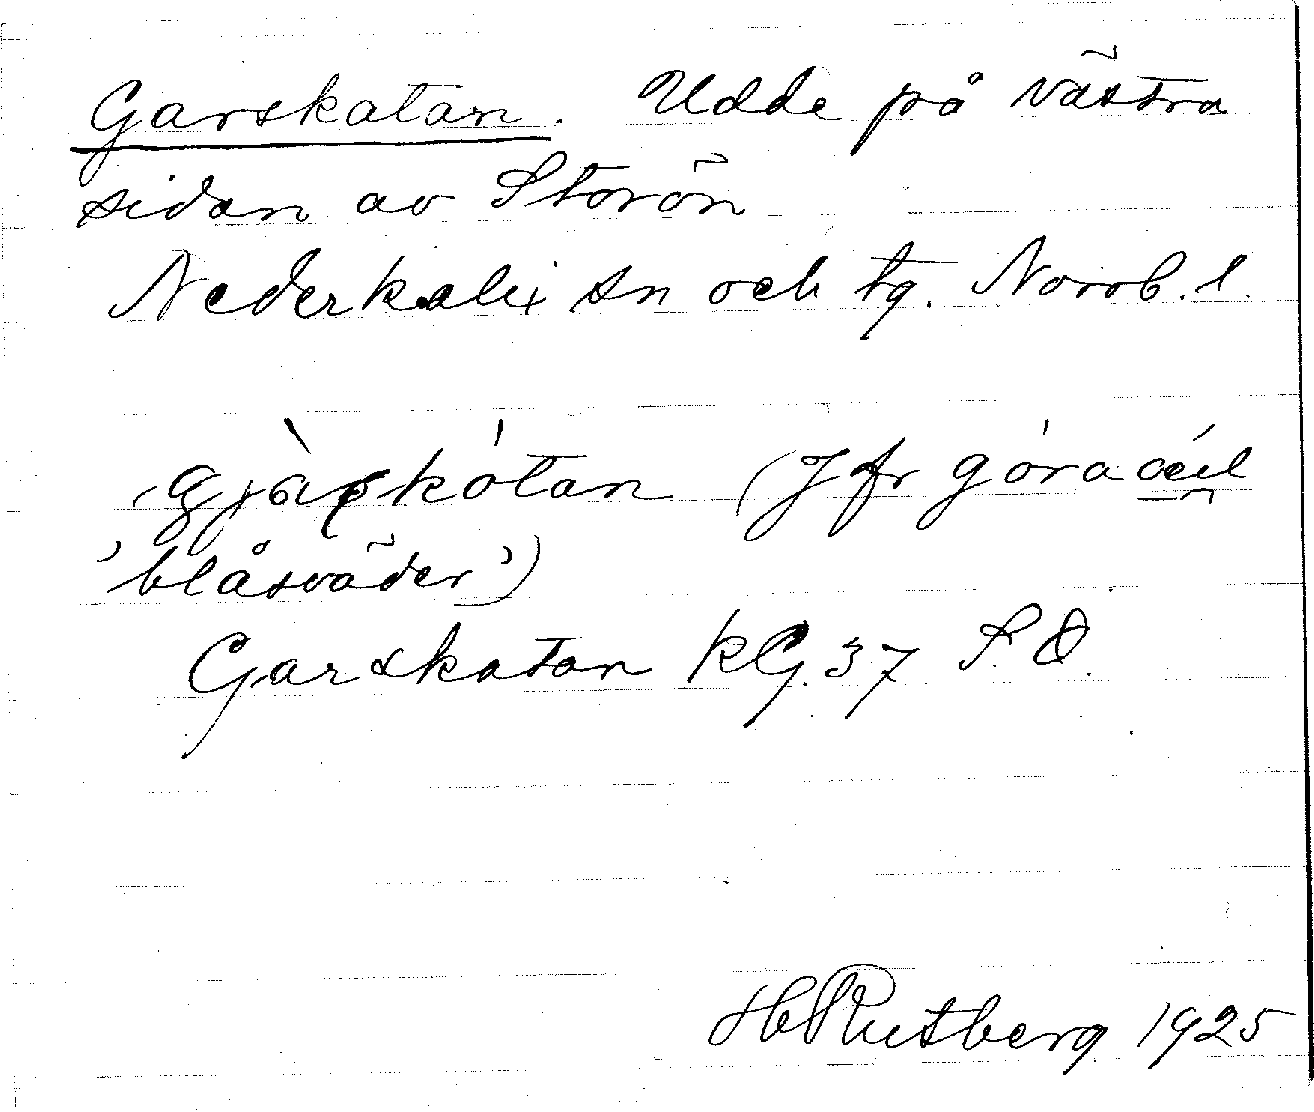 Garskatan. Udde på västra
sidan av Storön
Nederkalix sn och tg. Norrb. l.
(Jfr
'blåsväder')
Garskatan KG. 37 S.O.
H Rutberg 1925